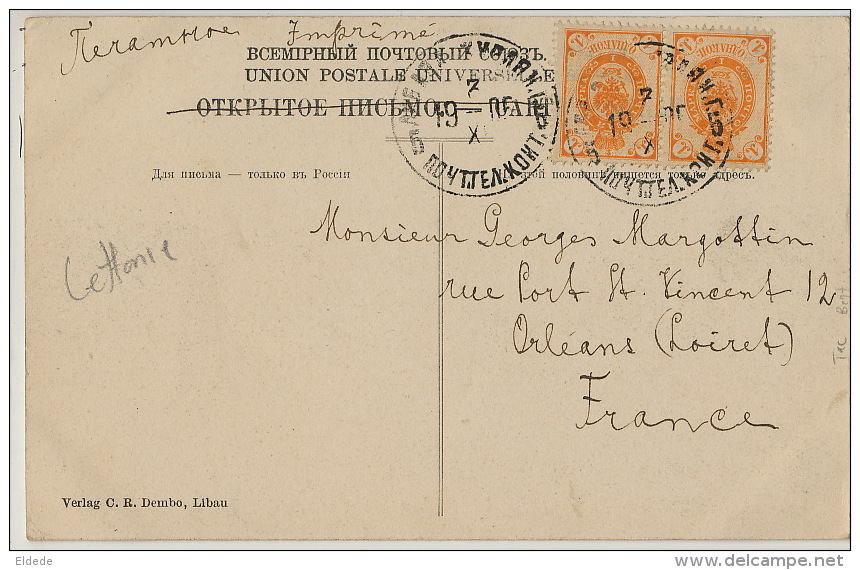 Печатное Imprimé
ВСЕМІРНЫЙ ПОЧТОВЫЙ СОЮЗЪ.
UNION POSTALE UNIVERSELLE
ОТКРЫТОЕ ПИСЬМО
Для письма — только въ Россіи
этой половинѣ пишется только адресъ.
7
19
X
ПОЧТ.ТЕЛ.КОНТ.
7
19
X
ПОЧТ.ТЕЛ.КОНТ.
Lettonie
Monsieur Georges Margottin
rue Port St. Vincent 12
Orléans (Loiret)
France
Verlag C. R. Dembo, Libau
Eldede
delcampe.net